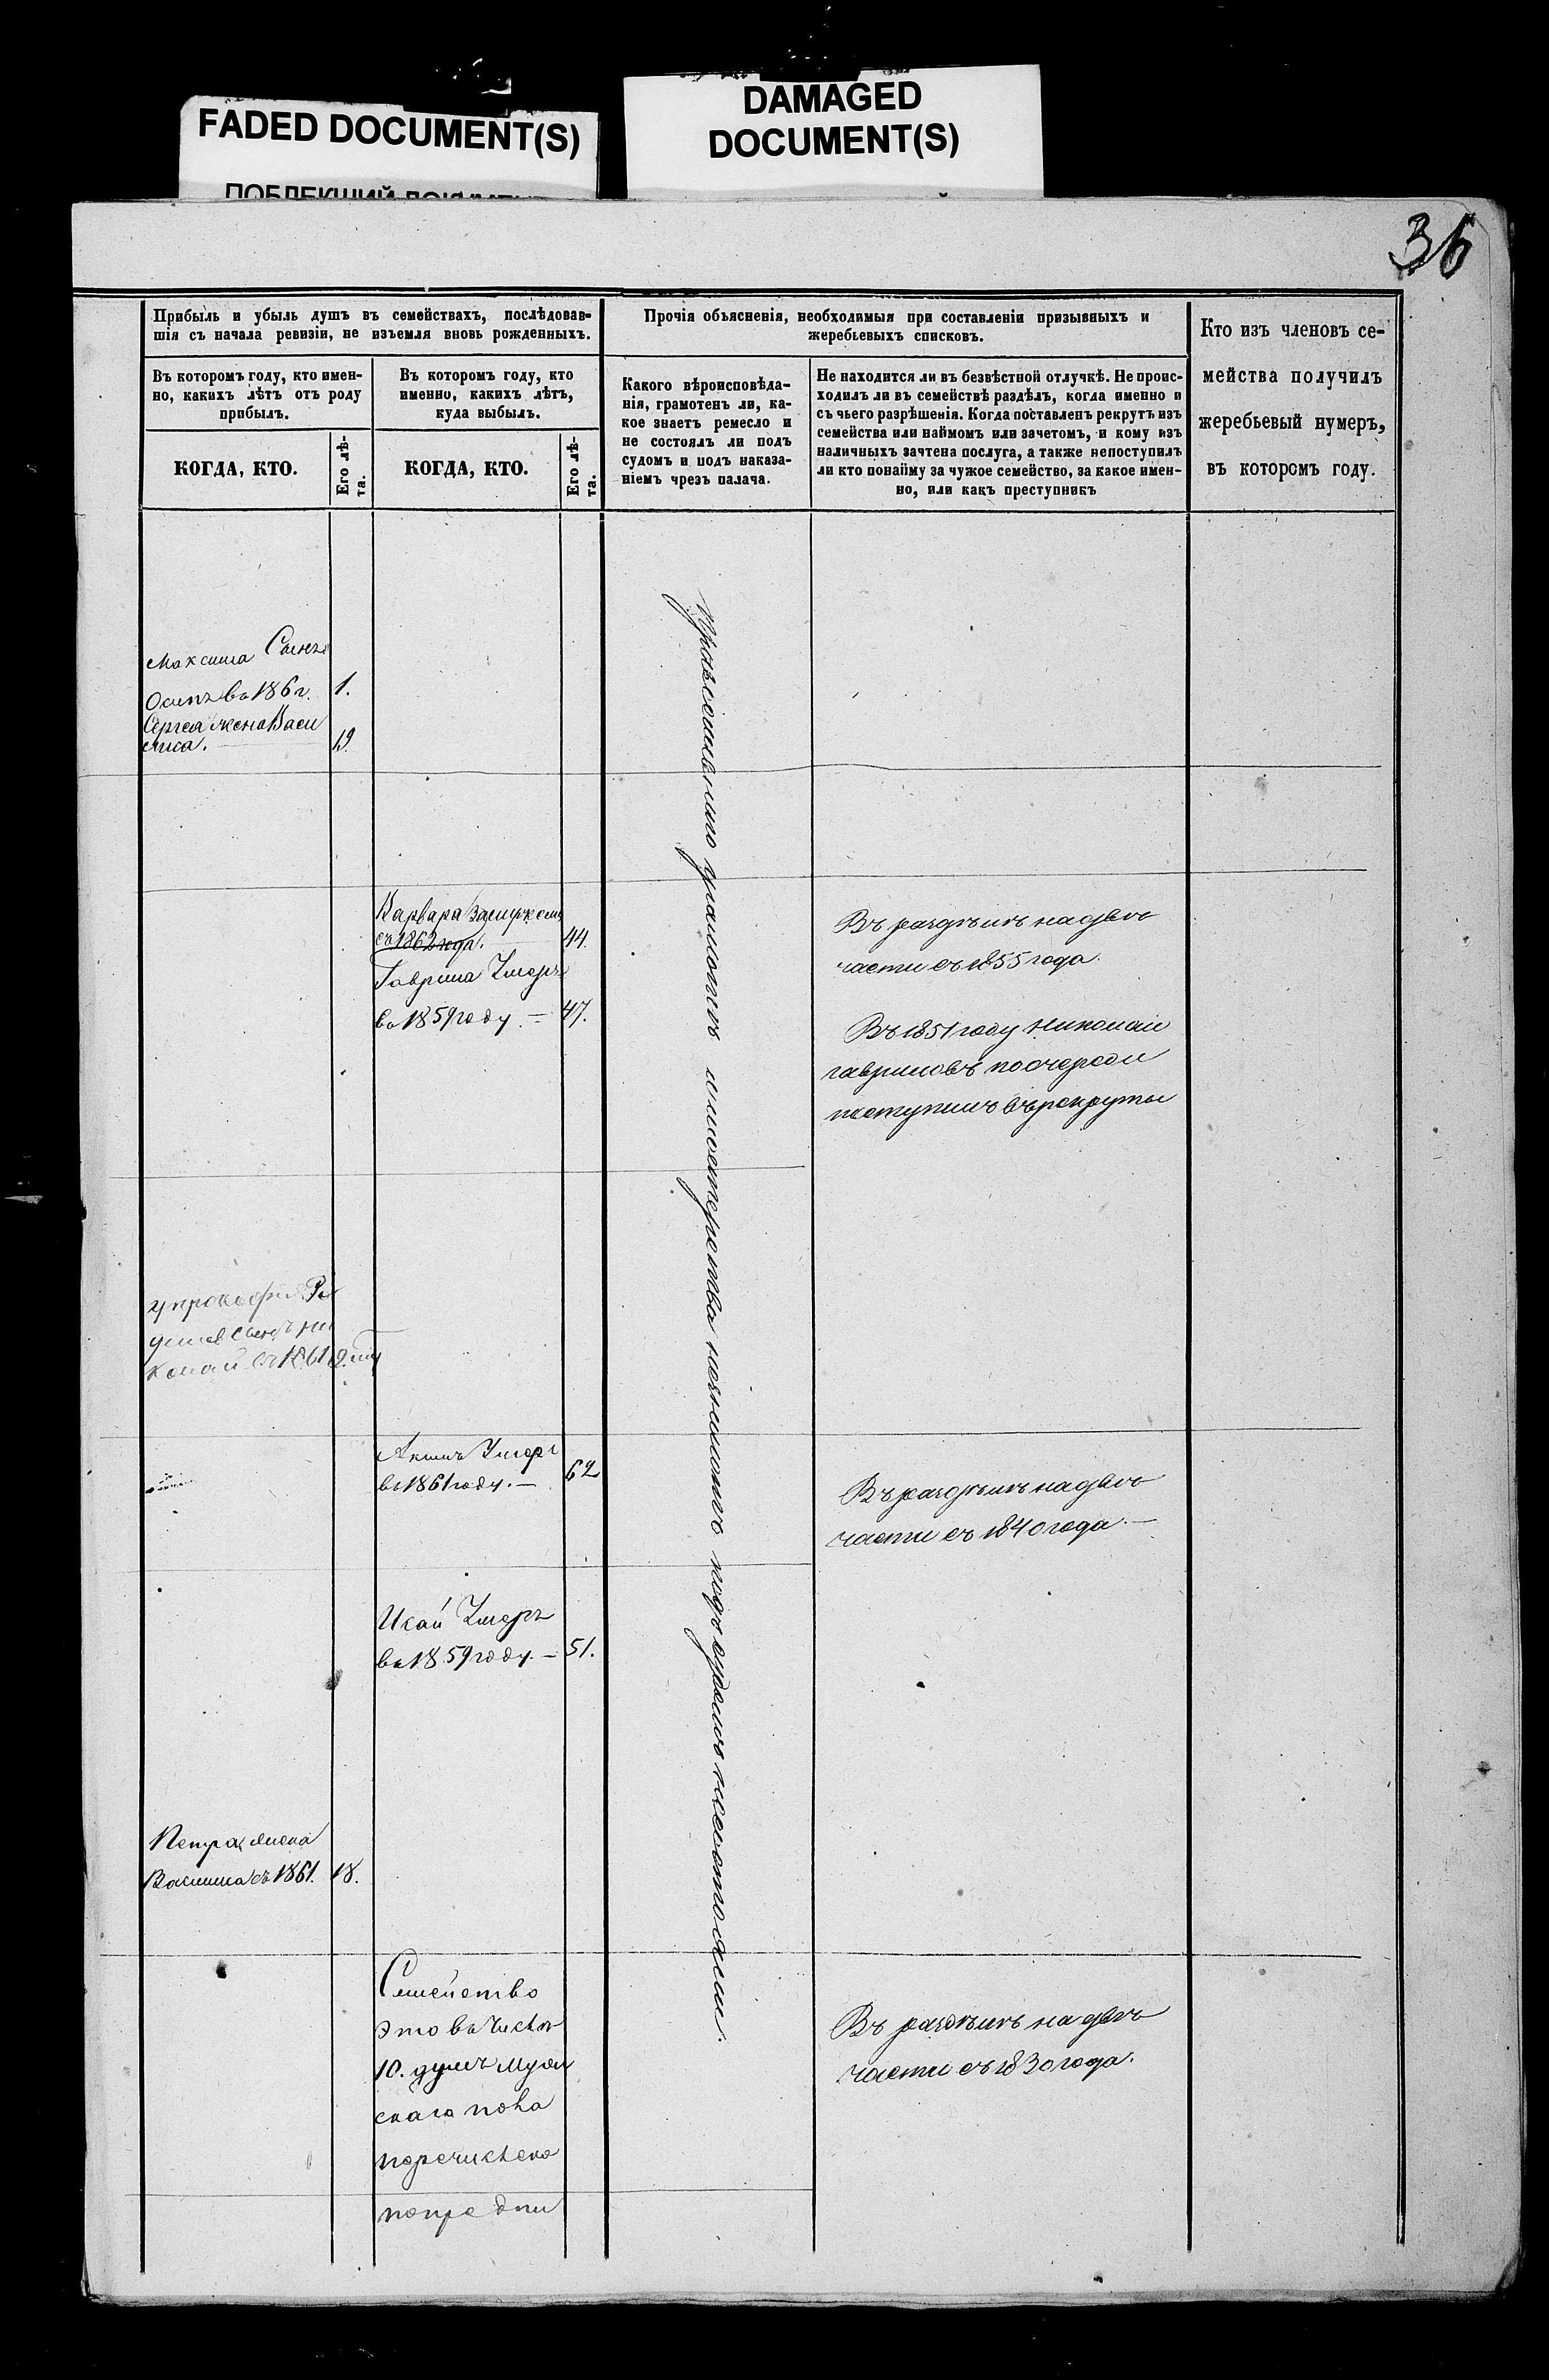 FADED DOCUMENT(S)
DAMAGED
DOCUMENT(S)
36
Прибыль и убыль душъ въ семействахъ, послѣдовав-
шія съ начала ревизіи, не изъемля вновь рожденныхъ.
Прочія объясненія, необходимыя при составленіи призывныхъ и
жеребьевыхъ списковъ.
Кто изъ членовъ се-
мейства получилъ
жеребьевый нумеръ,
въ которомъ году.
Въ которомъ году, кто имен-
но, какихъ лѣтъ отъ роду
прибылъ.
Въ которомъ году, кто
именно, какихъ лѣтъ,
куда выбылъ.
Какого вѣроисповѣда-
нія, грамотенъ ли, ка-
кое знаетъ ремесло и
не состоялъ ли подъ
судомъ и подъ наказа-
ніемъ чрезъ палача.
Не находится ли въ безвѣстной отлучкѣ. Не проис-
ходилъ ли въ семействѣ раздѣлъ, когда именно и
съ чьего разрѣшенія. Когда поставленъ рекрутъ изъ
семейства или наймомъ или зачетомъ, и кому изъ
наличныхъ зачтена послуга, а также непоступилъ
ли кто понайму за чужое семейство, за какое имен-
но, или какъ преступникъ
КОГДА, КТО.
Его лѣ-
та.
КОГДА, КТО.
Его лѣ-
та.
Максима Сынъ
Осипъ въ 186 г. 1.
Сергея жена Васи
лиса. 19.
Варвара Замужемъ
съ 1862 года. 44.
Гаврила Умеръ
въ 1859 году. 47.
Въ раздѣлѣ на двѣ
части съ 1855 года.
Въ 1851 году Николай
гавриловъ по очереди
поступилъ въ рекруты
Православнаго грамотѣ и мастерства незнаютъ подъ судомъ несостояли.
у прокофья Ро
дился сынъ Ни
колай въ 1861
Акимъ Умеръ
въ 1861 году. 62
Въ раздѣлѣ на двѣ
части съ 1840 года.
Исай Умеръ
въ 1859 году. 51.
Петра жена
Василиса съ 1861. 18.
Семейство
это въ числѣ
10. душъ Муж
скаго пола
перечислено
Въ раздѣлѣ на двѣ
части съ 1830 года.